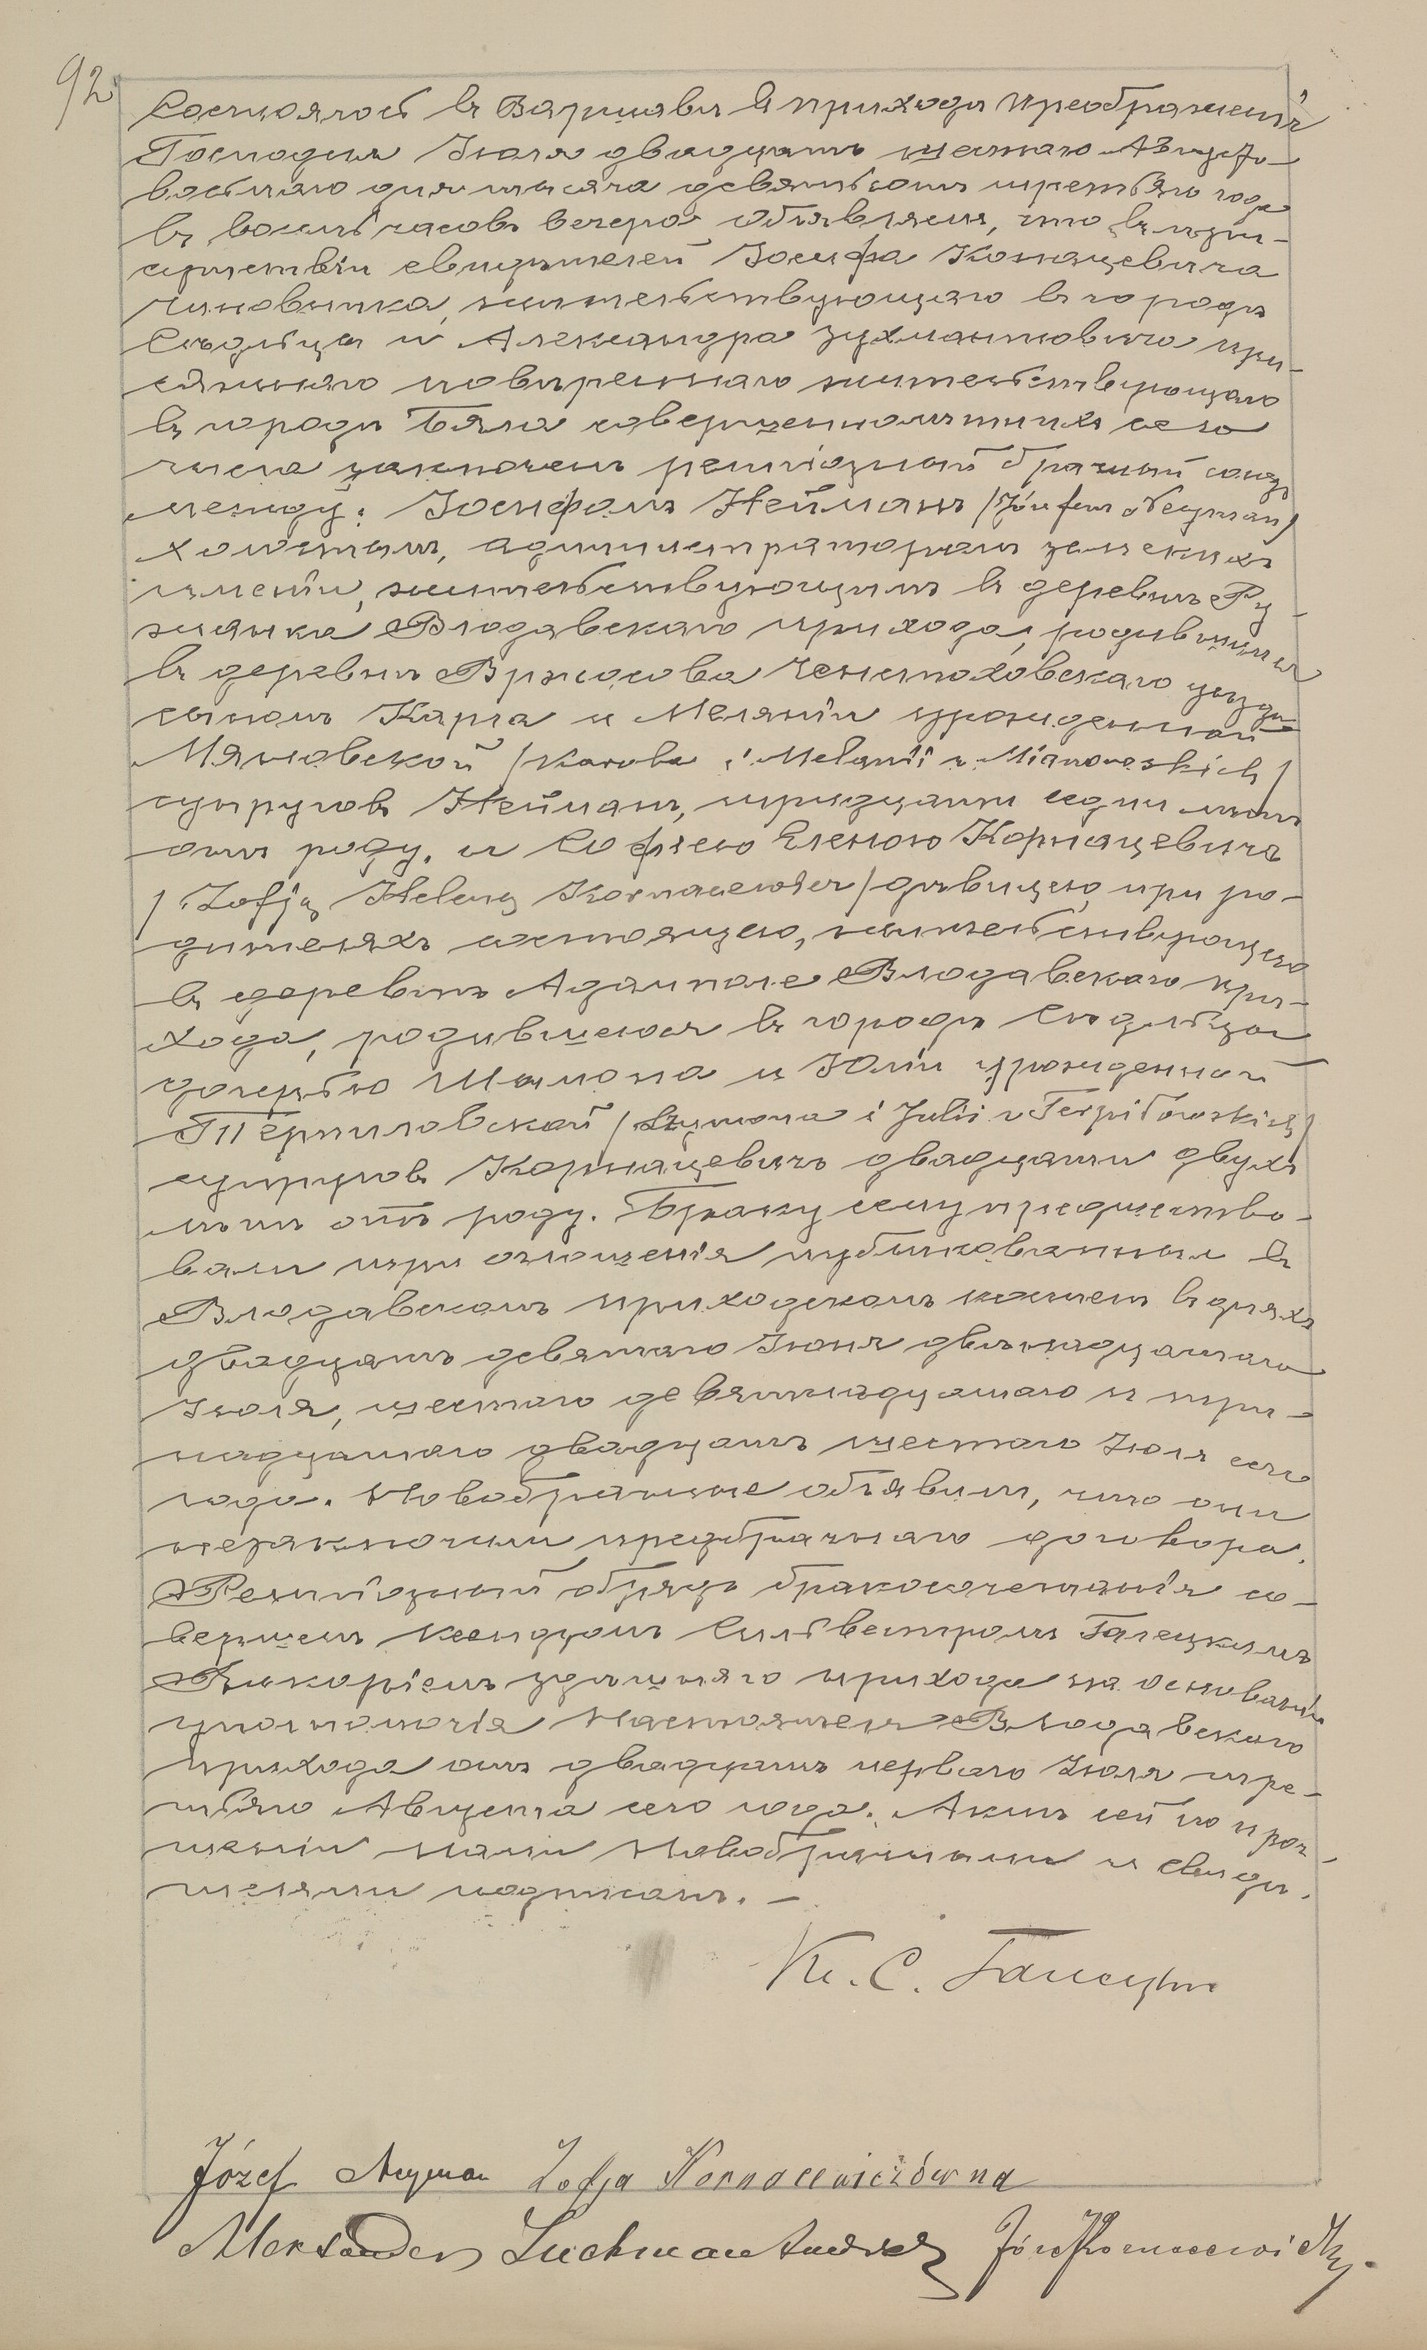 92
Состоялось въ Варшавѣ въ приходѣ Преображенія
Господня Іюля двадцать шестаго Августа
восьмаго дня тысяча девятьсотъ третьяго года
въ восемь часовъ вечера. Объявляемъ, что въ при-
сутствіи свидѣтелей Іосифа Конацевича
чиновника, жительствующаго въ городѣ
Сѣдльцы и Александра Зухмантовича при-
сяжнаго повѣреннаго жительствующаго
въ городѣ Бяла совершеннолѣтнихъ сего
числа заключенъ религіозный брачный союзъ
между: Іосифомъ Нейманъ /Józefem Neyman/
холостымъ, администраторомъ земскихъ
имѣній, жительствующимъ въ деревнѣ Ру-
жанка Влодавскаго прихода, родившимся
въ деревнѣ Вржосова Ченстоховскаго уѣзда
сыномъ Карла и Меланіи урожденной
Мяновской /Karola i Melanii z Mianowskich/
супруговъ Нейманъ, тридцати одни лѣтъ
отъ роду. и Софіею Еленою Корнацевичъ
/Zofją Heleną Kornacewicz/ дѣвицею, при ро-
дителяхъ состоящею, жительствующею
въ деревнѣ Адамполе Влодавскаго при-
хода, родившеюся въ городѣ Сѣдльцы
дочерью Шимона и Юліи урожденной
Терпиловской /Szymona i Julii z Terpiłowskich/
супруговъ Корнацевичъ двадцати двухъ
лѣтъ отъ роду. Браку сему предшество-
вали три оглашенія публикованныя въ
Влодавскомъ приходскомъ костелѣ въ дняхъ
двадцать девятаго Іюня двѣнадцатаго
Іюля, шестаго девятнадцатаго и три-
надцатаго двадцать шестаго Іюля сего
года. Новобрачные объявили, что они
незаключили предбрачнаго договора.
Религіозный обрядъ бракосочетанія со-
вершенъ Ксендзомъ Сильвестромъ Галецкимъ
Викаріемъ здѣшняго прихода на основаніи
уполномочія Настоятеля Влодавскаго
прихода отъ двадцать перваго Іюля тре-
тьяго Августа сего года. Актъ сей по проч-
теніи нами Новобрачными и свидѣ-
телями подписанъ. —
Кс. С. Галецкій
Józef Neyman Zofja Kornacewiczówna
Aleksander Zuchmantowicz Józef Kornacewicz